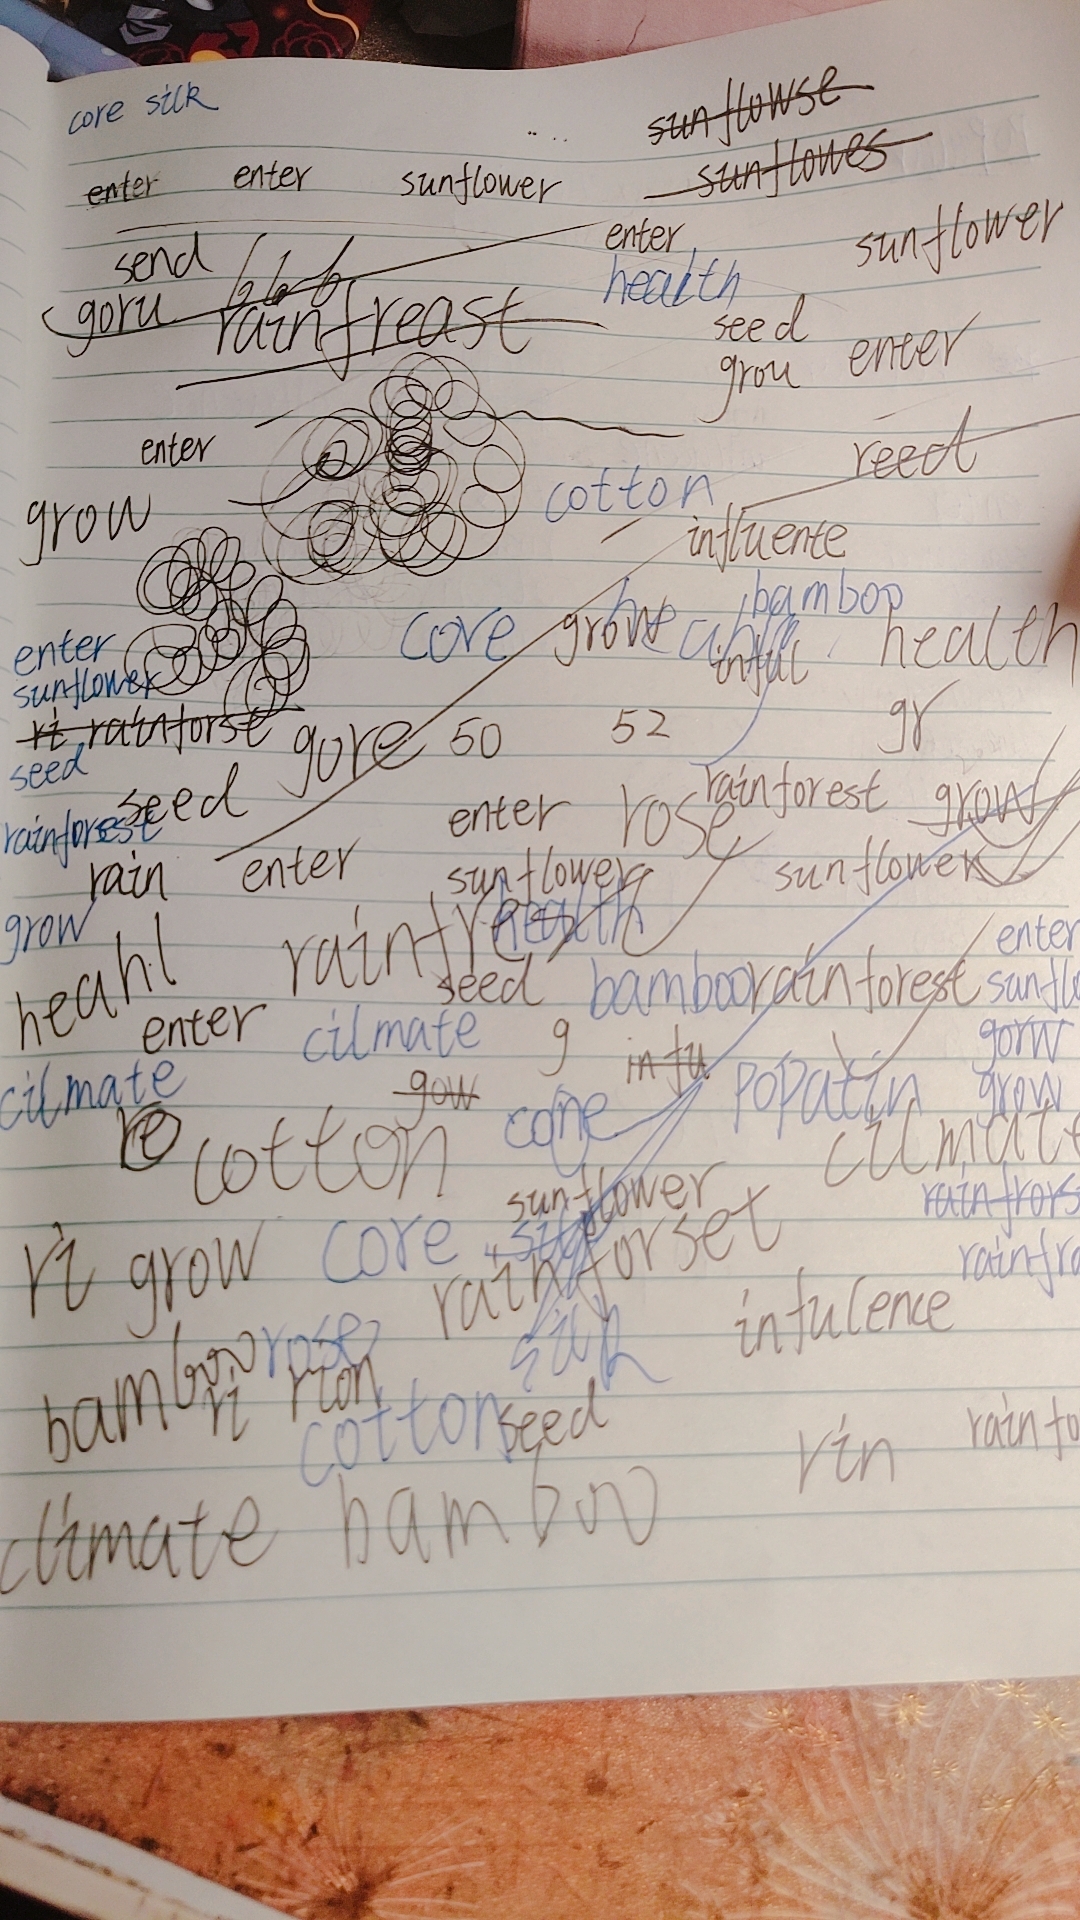 core silk
sunflowse
enter enter sunflower sunflowes
send 666 enter sunflower
goru rainfreast health
seed
grou enter
enter reed
grow cotton
influente
bamboo
enter core health
sunflower
ri rainforse gore 50 52 gr
seed
seed enter rose rainforest grow
rainforest
rain enter sunflower sunflower
grow health enter
heahl rainfre seed bamboo rainforest sunflo
enter cilmate g infu gorw
cilmate gow popatin grow
re cotton cilmate
sunflower rainfrors
ri grow core rainforset rainfra
bamboo rose silk infulence
ri rion
cotton seed rin rainfo
climate bamboo